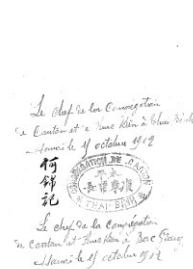 Le chef de la Congrégation
de Canton et à Phuc Kiên à Thai Binh
Hanoi le 17 octobre 1912
何錦記
CONGREGATION DE CANTON
THAI BINH
Le chef de la Congrégation
de Canton et Phuc Kiên, à Bac Giang
Hanoi le 17 octobre 1912